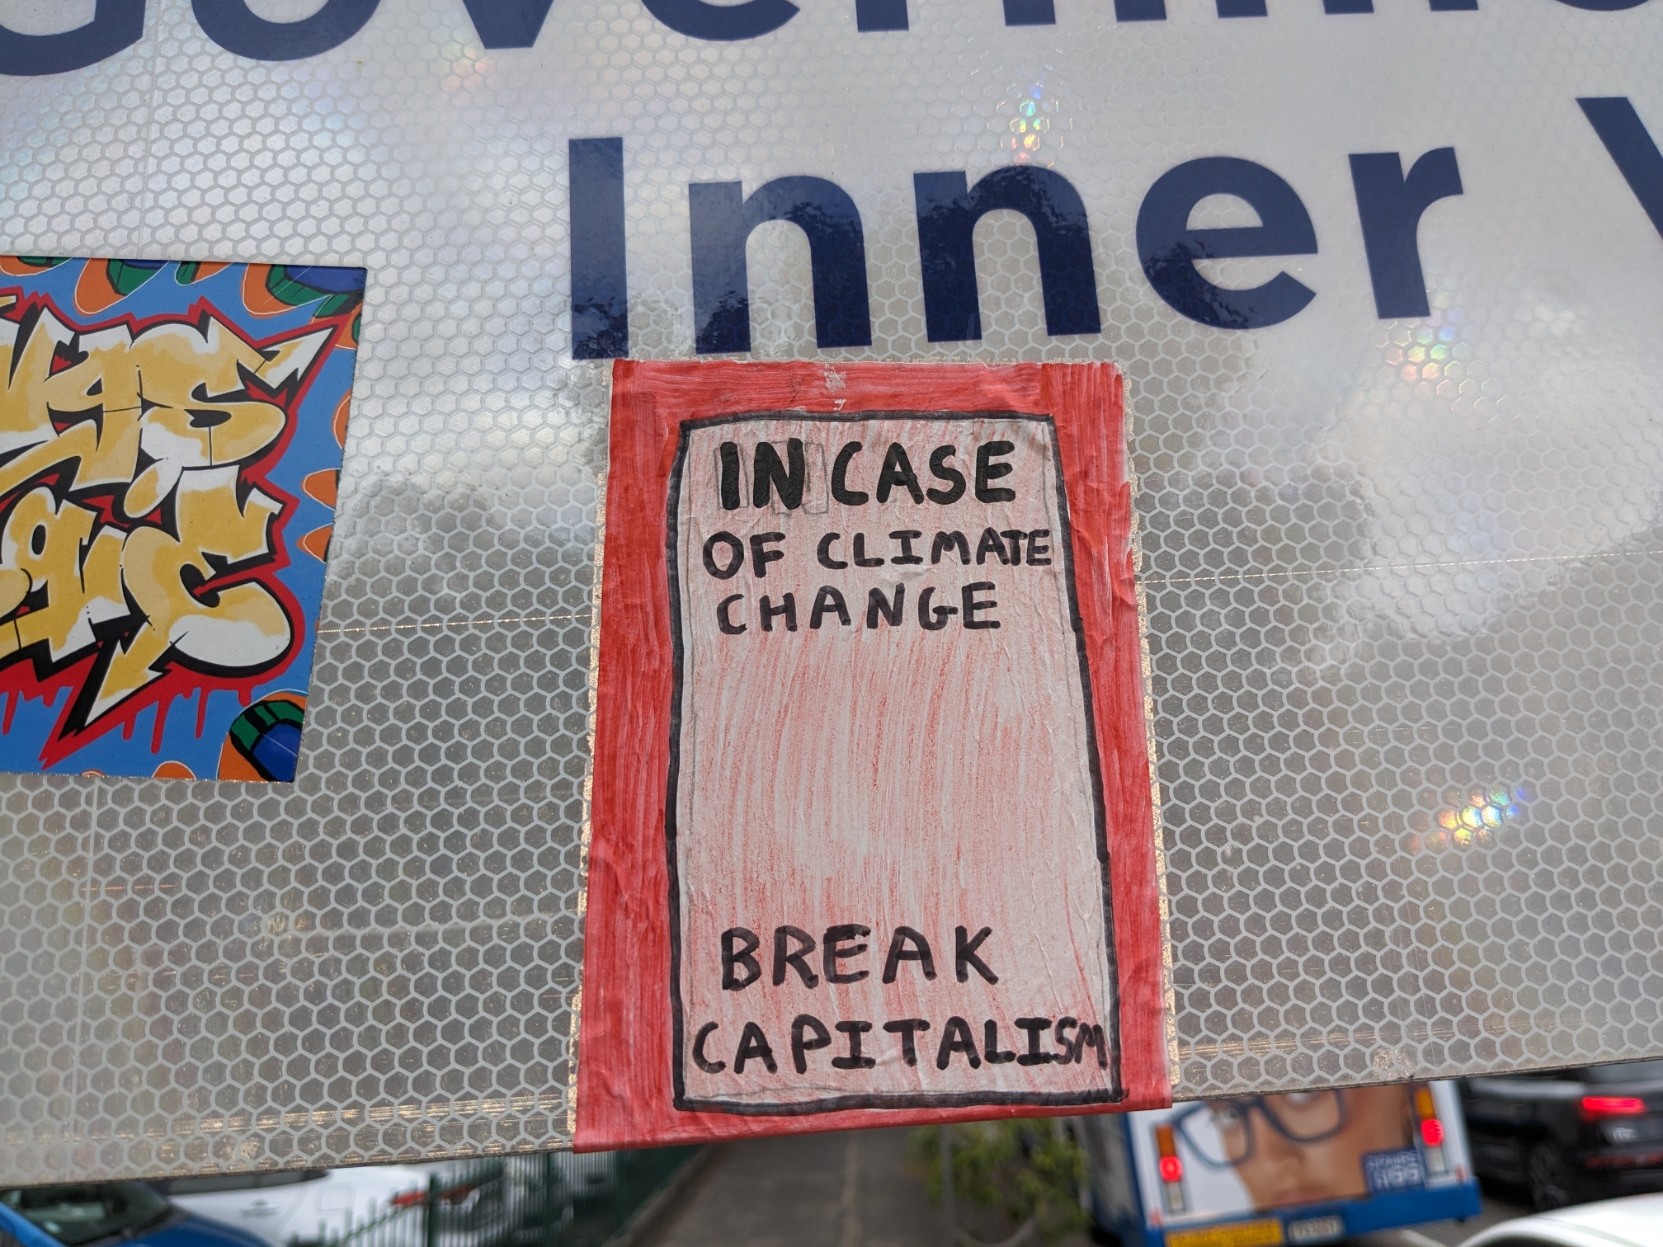 Inner
IN CASE
OF CLIMATE
CHANGE
BREAK
CAPITALISM